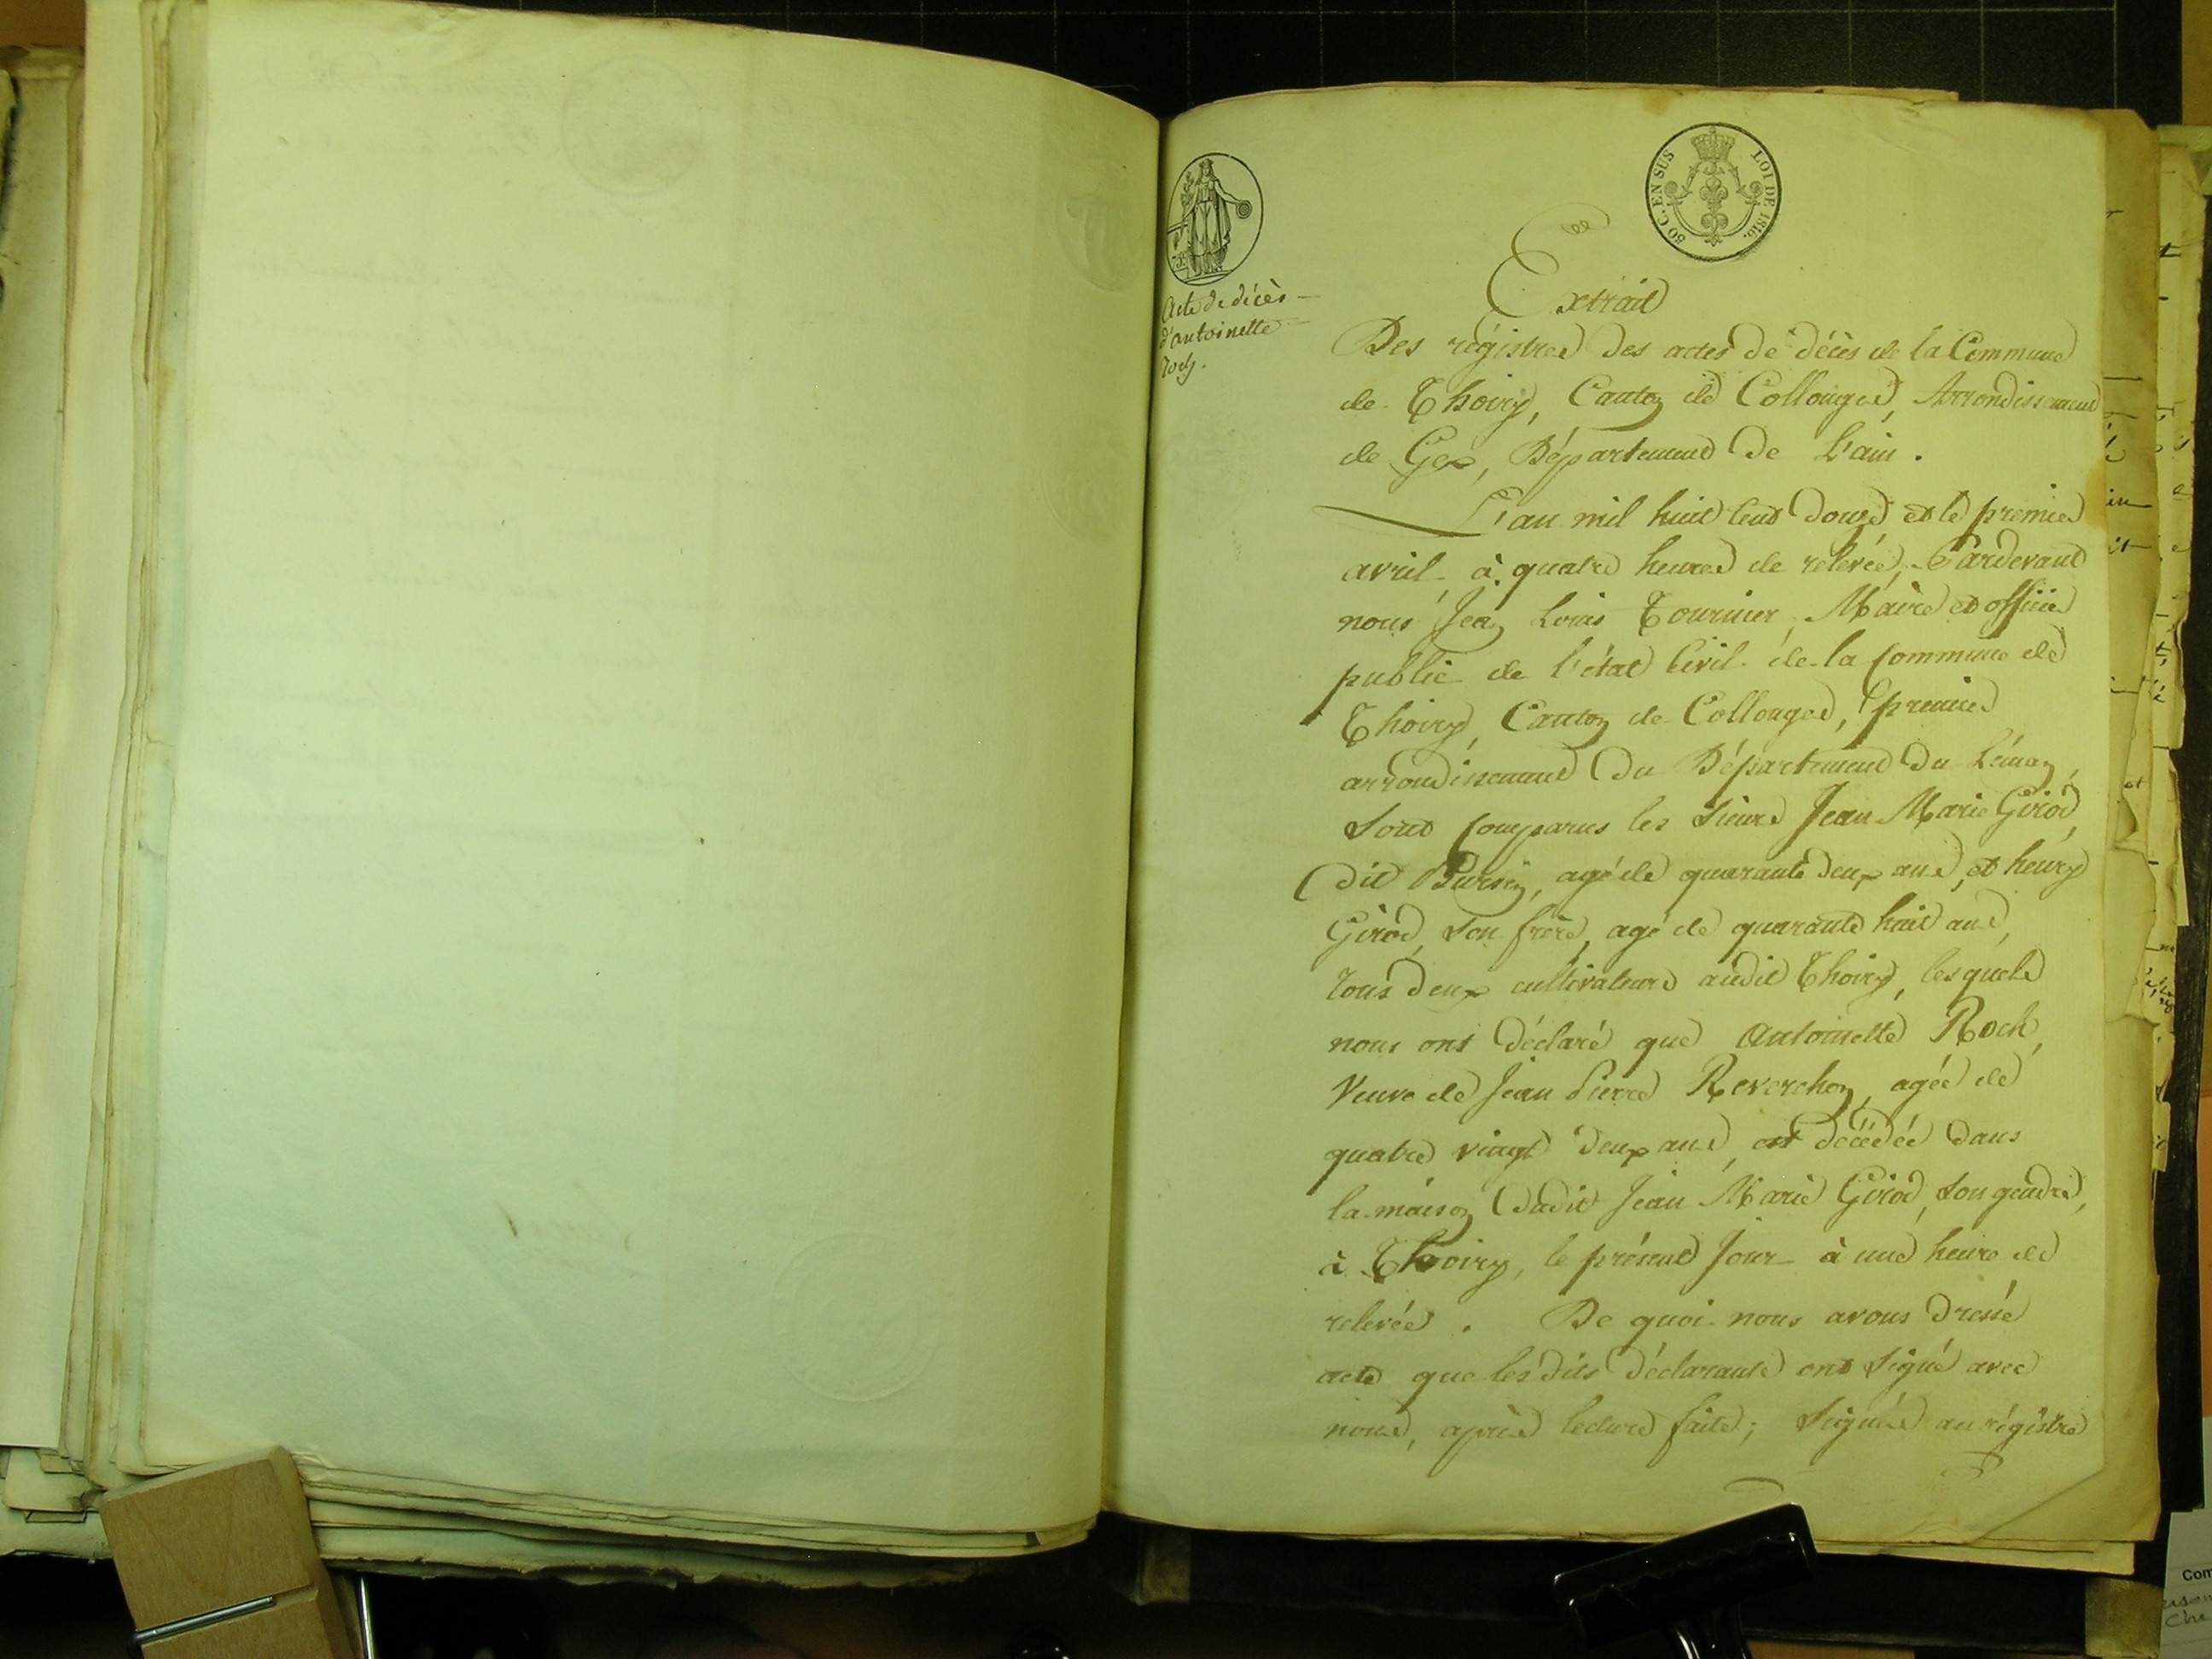 80 C. EN SUS LOI DE 1816.
Acte de décès
d'antoinette
Extrait
Des régistres des actes de décès de la Commune
de Thoiry, Canton de Collonges, Arrondissement
de Gex, Département de L'ain.
L'an mil huit cent douze et le premier
avril, à quatre heures de relevée, Pardevant
nous Jean Louis Tournier, Maire et officier
public de l'état Civil de la Commune de
Thoiry, Canton de Collonges, premier
arrondissement du Département du Léman,
sont comparus les sieurs Jean Marie Girod,
dit agé de quarante deux ans, et henry
Girod, son frère, agé de quarante huit ans,
tous deux cultivateurs audit Thoiry, lesquels
nous ont déclaré que Antoinette Roch,
Veuve de Jean Pierre Reverchon, agée de
quatre vingt deux ans, est décédée dans
la maison dudit Jean Marie Girod, son gendre,
à Thoiry, le présent jour à une heure de
relevée. De quoi nous avons dressé
acte que les dits déclarants ont signé avec
nous, après lecture faite; Signés au régistre
Com